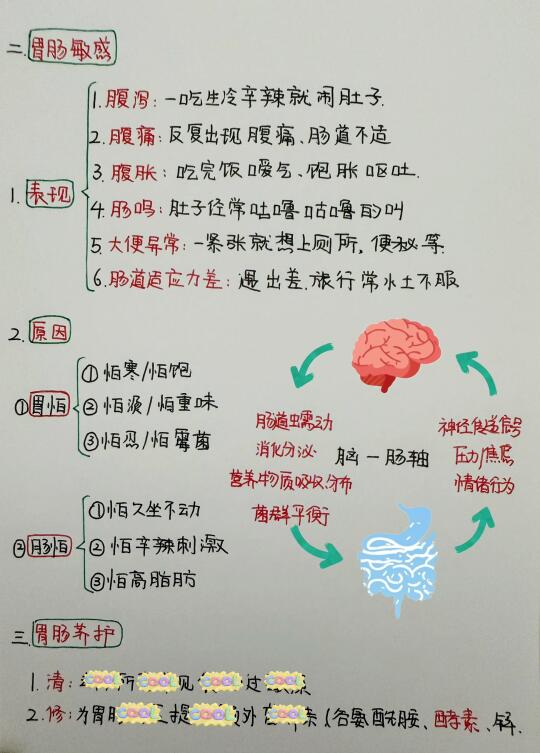 二.胃肠敏感
1.表现
1.腹泻:一吃生冷辛辣就闹肚子.
2.腹痛:反复出现腹痛、肠道不适
3.腹胀:吃完饭嗳气、饱胀呕吐.
4.肠鸣:肚子经常咕噜咕噜的叫
5.大便异常:一紧张就想上厕所,便秘等.
6.肠道适应力差:遇出差.旅行常水土不服
2.原因
①胃怕
①怕寒/怕饱
②怕液/怕重味
③怕忍/怕霉菌
②肠怕
①怕久坐不动
②怕辛辣刺激
③怕高脂肪
肠道蠕动
消化分泌
营养物质吸收分布
菌群平衡
脑一肠轴
神经传送信号
压力/焦虑
情绪行为
三.胃肠养护
1.清: COOL 所 COOL 见 COOL 过 COOL
2.修:为胃肠 COOL 提 COOL 外 COOL (谷氨酰胺、酵素、锌.